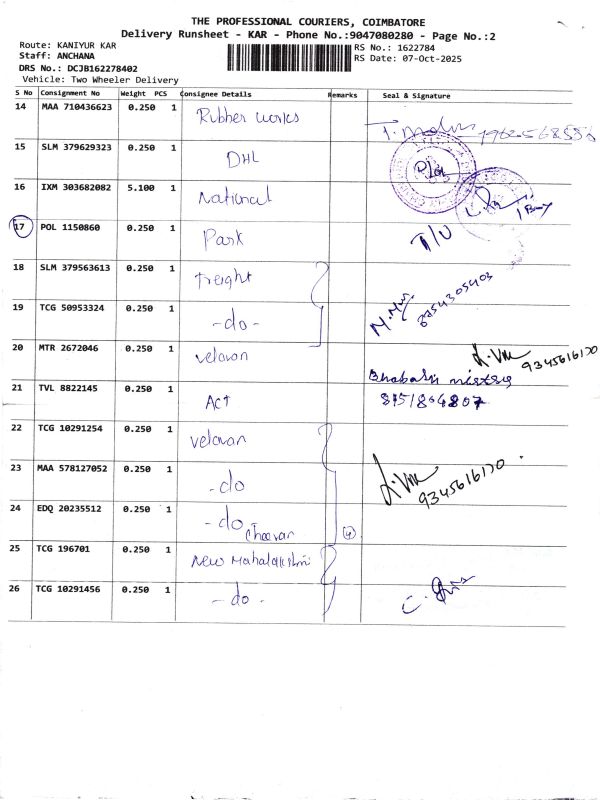 THE PROFESSIONAL COURIERS, COIMBATORE
Delivery Runsheet - KAR - Phone No.:9047080280 - Page No.:2
Route: KANIYUR KAR
Staff: ANCHANA
DRS No.: DCJB162278402
Vehicle: Two Wheeler Delivery
RS No.: 1622784
RS Date: 07-Oct-2025
S No Consignment No Weight PCS Consignee Details Remarks Seal & Signature
14 MAA 710436623 0.250 1 Rubber works
15 SLM 379629323 0.250 1 DHL
16 IXM 303682082 5.100 1 National
17 POL 1150860 0.250 1 Park T/U
18 SLM 379563613 0.250 1 freight 8754305403
19 TCG 50953324 0.250 1 -do-
20 MTR 2672046 0.250 1 velavan 9345616170
21 TVL 8822145 0.250 1 Act
22 TCG 10291254 0.250 1 velavan
23 MAA 578127052 0.250 1 -do 9345616170
24 EDQ 20235512 0.250 1 -do
25 TCG 196701 0.250 1 New Mahalakshmi
26 TCG 10291456 0.250 1 -do-